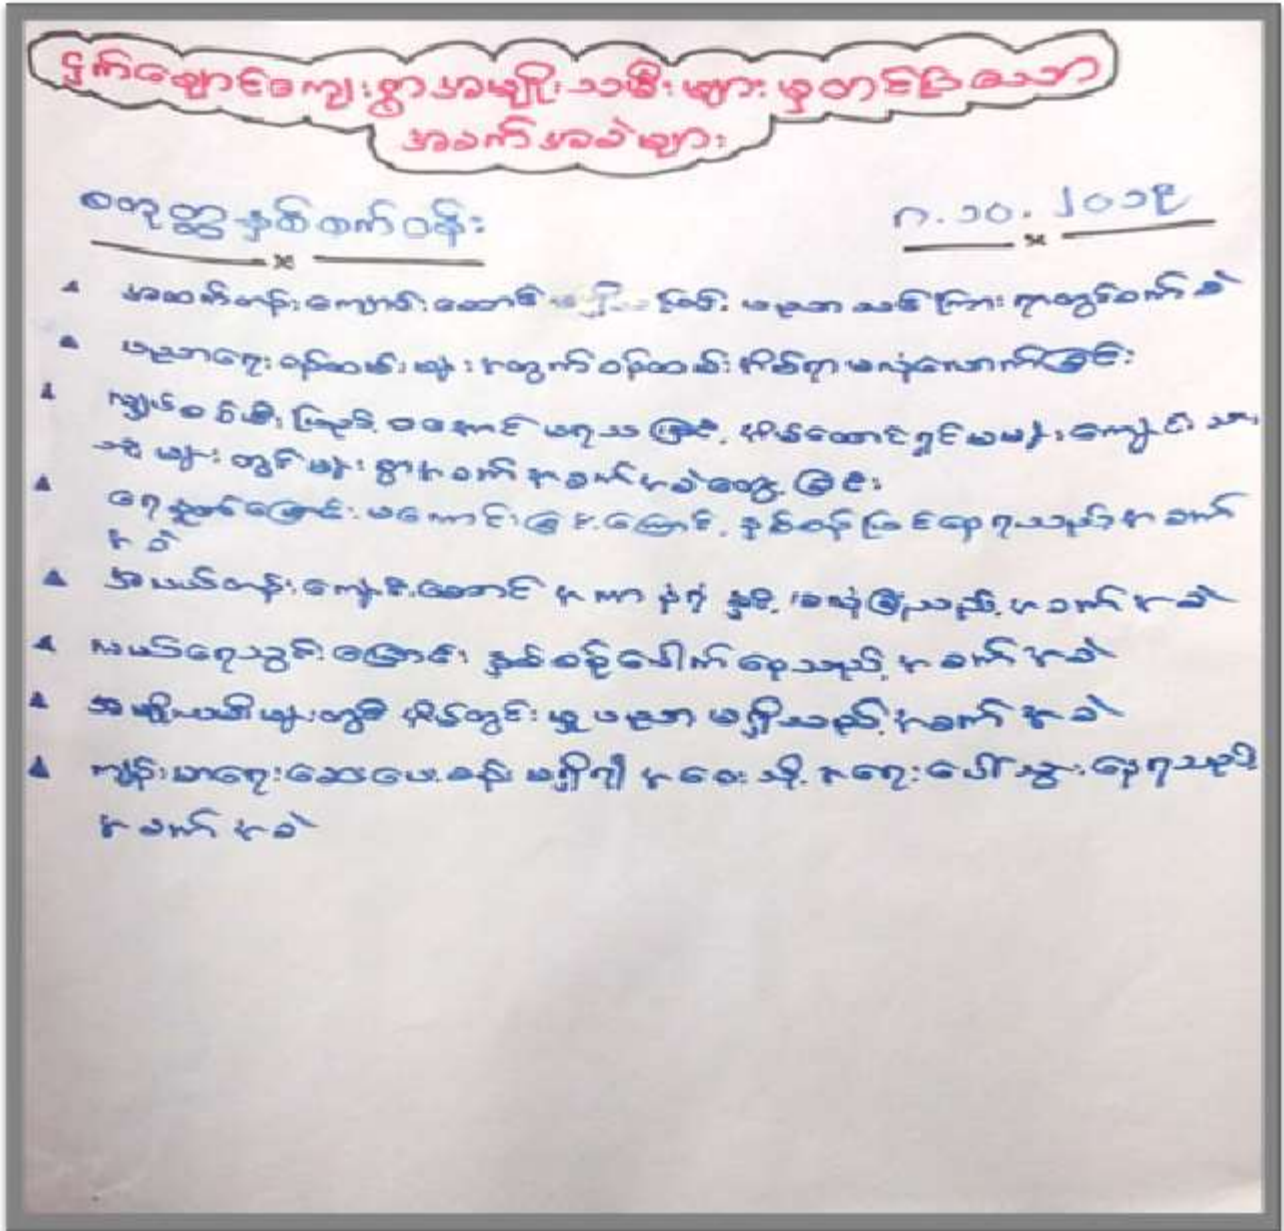 ငှက်ချောင်ကျေးရွာအမျိုးသမီးများမှတင်ပြသော
အခက်အခဲများ
စတုတ္ထနှစ်ပတ်ဝန်း ၈.၁၀.၂၀၁၉
အထက်တန်းကျောင်းဆောင် ပညာသင်ကြားရာတွင်ခက်ခဲ
ပညာရေးဝန်ထမ်းများအတွက်ဝန်ထမ်းအိမ်ရာမလုံလောက်ခြင်း
ကျွယ်စစ်မီးကြောင့် မရသဖြင့် အိမ်ထောင်ရှင်မများကျောင်းသား
သူများတွင်များစွာအခက်အခက်အခဲတွေ့ခြင်း
ရေနှုတ်မြောင်းမကောင်းခြင်းကြောင့်နှစ်စဉ်မြစ်နေရသည့်အခက်
အခဲ
အလယ်တန်းကျောင်းဆောင် အကာအရံနှင့်မလုံခြုံသည့်အခက်အခဲ
လယ်ရေသွင်းမြောင်း နှစ်စဉ်ပေါက်နေသည့်အခက်အခဲ
အမျိုးသမီးများတွင် အိမ်တွင်းမှုပညာ မရှိသည့်အခက်အခဲ
ကျန်းမာရေးဆေးပေးခန်းမရှိ၍ အဝေးသို့အရေးပေါ်သွားနေရသည့်
အခက်အခဲ